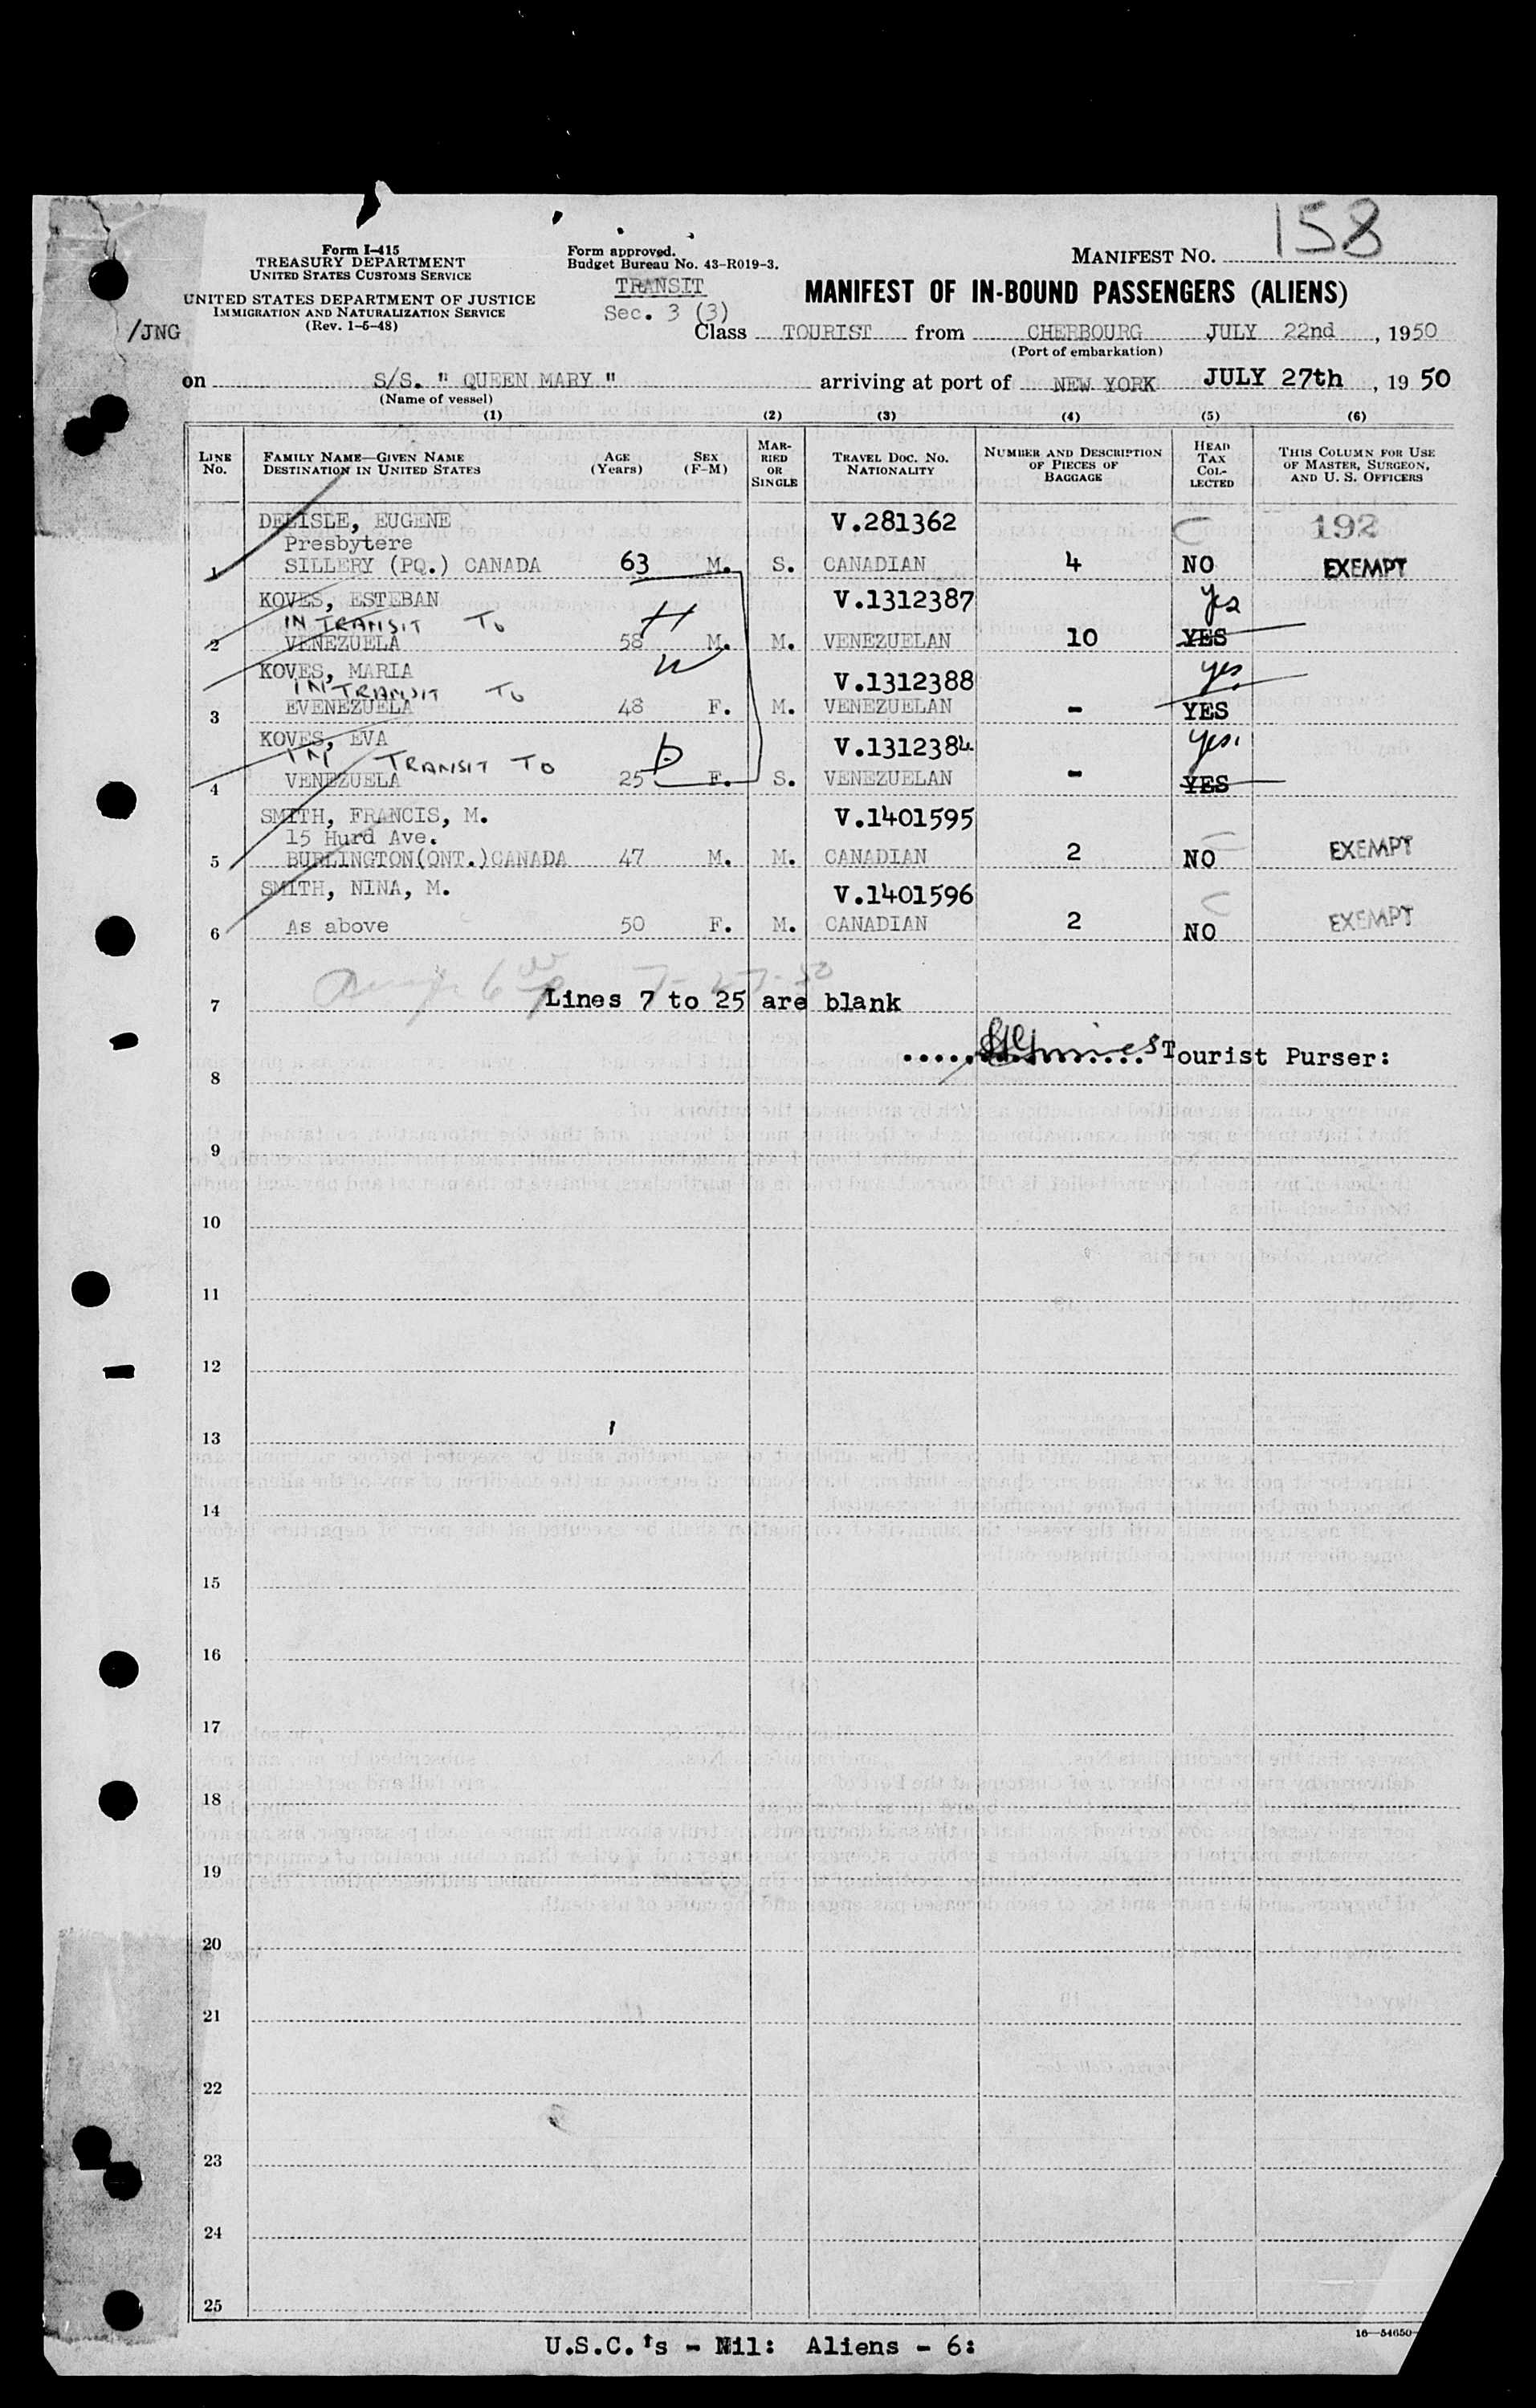 158
Form I-415
TREASURY DEPARTMENT
UNITED STATES CUSTOMS SERVICE
UNITED STATES DEPARTMENT OF JUSTICE
IMMIGRATION AND NATURALIZATION SERVICE
(Rev. 1-5-48)
/JNG
Form approved.
Budget Bureau No. 43-R019-3.
TRANSIT
Sec. 3 (3)
MANIFEST NO.
MANIFEST OF IN-BOUND PASSENGERS (ALIENS)
Class TOURIST from CHERBOURG JULY 22nd, 1950
(Port of embarkation)
on S/S. " QUEEN MARY " arriving at port of NEW YORK JULY 27th, 19 50
(Name of vessel)
(1) (2) (3) (4) (5) (6)
LINE No. FAMILY NAME—GIVEN NAME DESTINATION IN UNITED STATES AGE (Years) SEX (F-M) MARRIED OR SINGLE TRAVEL DOC. NO. NATIONALITY NUMBER AND DESCRIPTION OF PIECES OF BAGGAGE HEAD TAX COLLECTED THIS COLUMN FOR USE OF MASTER, SURGEON, AND U. S. OFFICERS
DELISLE, EUGENE V.281362 C 192
Presbytere
1 SILLERY (PQ.) CANADA 63 M. S. CANADIAN 4 NO EXEMPT
KOVES, ESTEBAN V.1312387 Yes
IN TRANSIT TO H
2 VENEZUELA 58 M. M. VENEZUELAN 10 YES
KOVES, MARIA W V.1312388 yes
IN TRANSIT TO
3 EVENEZUELA 48 F. M. VENEZUELAN - YES
KOVES, EVA D V.1312384 yes.
IN TRANSIT TO
4 VENEZUELA 25 F. S. VENEZUELAN - YES
SMITH, FRANCIS, M. V.1401595
15 Hurd Ave.
5 BURLINGTON(ONT.)CANADA 47 M. M. CANADIAN 2 NO EXEMPT
SMITH, NINA, M. V.1401596 C
6 As above 50 F. M. CANADIAN 2 NO EXEMPT
7-27-50
7 Lines 7 to 25 are blank
Tourist Purser:
8
9
10
11
12
13
14
15
16
17
18
19
20
21
22
23
24
25
16—54650-
U.S.C.'s - Nil: Aliens - 6: